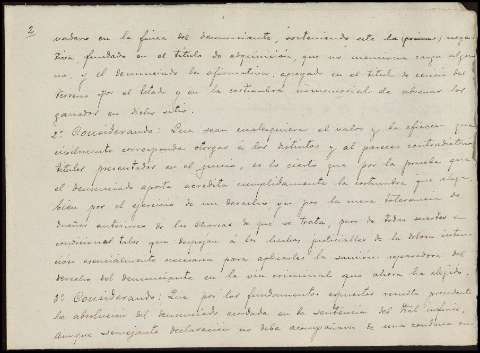 2
vadero en la finca del denunciante, sosteniendo este la (prueba) nega-
tiva fundada en el título de adquisición, que no menciona carga algu-
na, y el denunciado la afirmativa, apoyado en el título de cesión del
terreno por el Estado y en la costumbre inmemorial de abrevar los
ganados en dicho sitio.
2º Considerando: Que sean cualesquiera el valor y la eficacia que
civilmente corresponda otorgar á los distintos y al parecer contradictorios
títulos presentados en el juicio, es lo cierto que por la prueba que
el denunciado aporta acredita cumplidamente la costumbre que alega
bien por el ejercicio de un derecho ya por la mera tolerancia de
dueños anteriores de las tierras de que se trata, pero de todas suertes en
condiciones tales que despojan á los hechos justiciables de la dolosa inten-
ción esencialmente necesaria para aplicarles la sanción reparadora del
derecho del denunciante en la vía criminal que ahora ha elegido.
3º Considerando: Que por los fundamentos expuestos resulta procedente
la absolución del denunciado acordada en la sentencia del Tral inferior,
aunque semejante declaración no deba acompañarse de una condena en